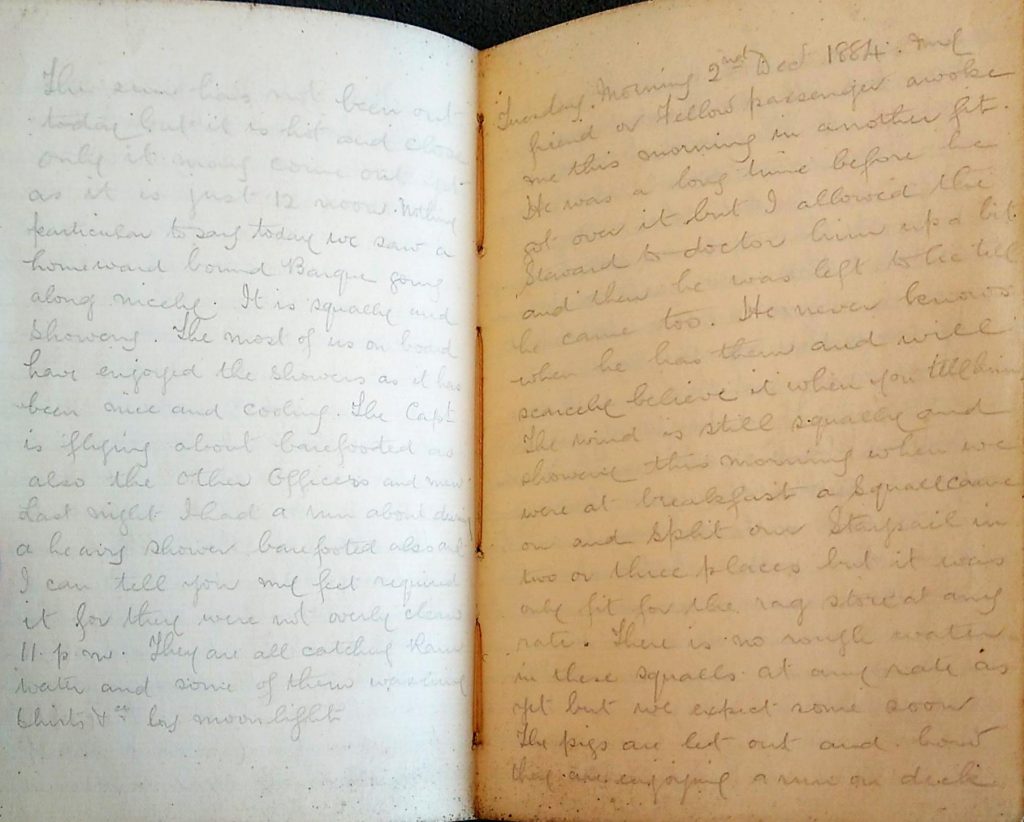 The sun has not been out
today but it is hot and close
only it may come out yet
as it is just 12 noon. Nothing
particular to say today we saw a
homeward bound Barque going
along nicely. It is squally and
Showery. The most of us on board
have enjoyed the showers as it has
been nice and cooling. The Capt
is flying about barefooted as
also the Other Officers and men
Last night I had a run about during
a heavy shower barefooted also and
I can tell you my feet required
it for they were not overly clean
11 p.m. They are all catching Rain
water and some of them washing
Shirts &c by moonlight
Tuesday. Morning 2nd Dec 1884. My
friend or Fellow passenger awoke
me this morning in another fit.
He was a long time before he
got over it but I allowed the
Steward to doctor him up a bit
and then he was left to lie till
he came too. He never knows
when he has them and will
scarcely believe it when you tell him
The wind is still squally and
showery this morning when we
were at breakfast a Squall came
on and Split our Staysail in
two or three places but it was
only fit for the rag store at any
rate. There is no rough water
in these squalls at any rate as
yet but we expect some soon
The pigs are let out and how
they are enjoying a run on deck